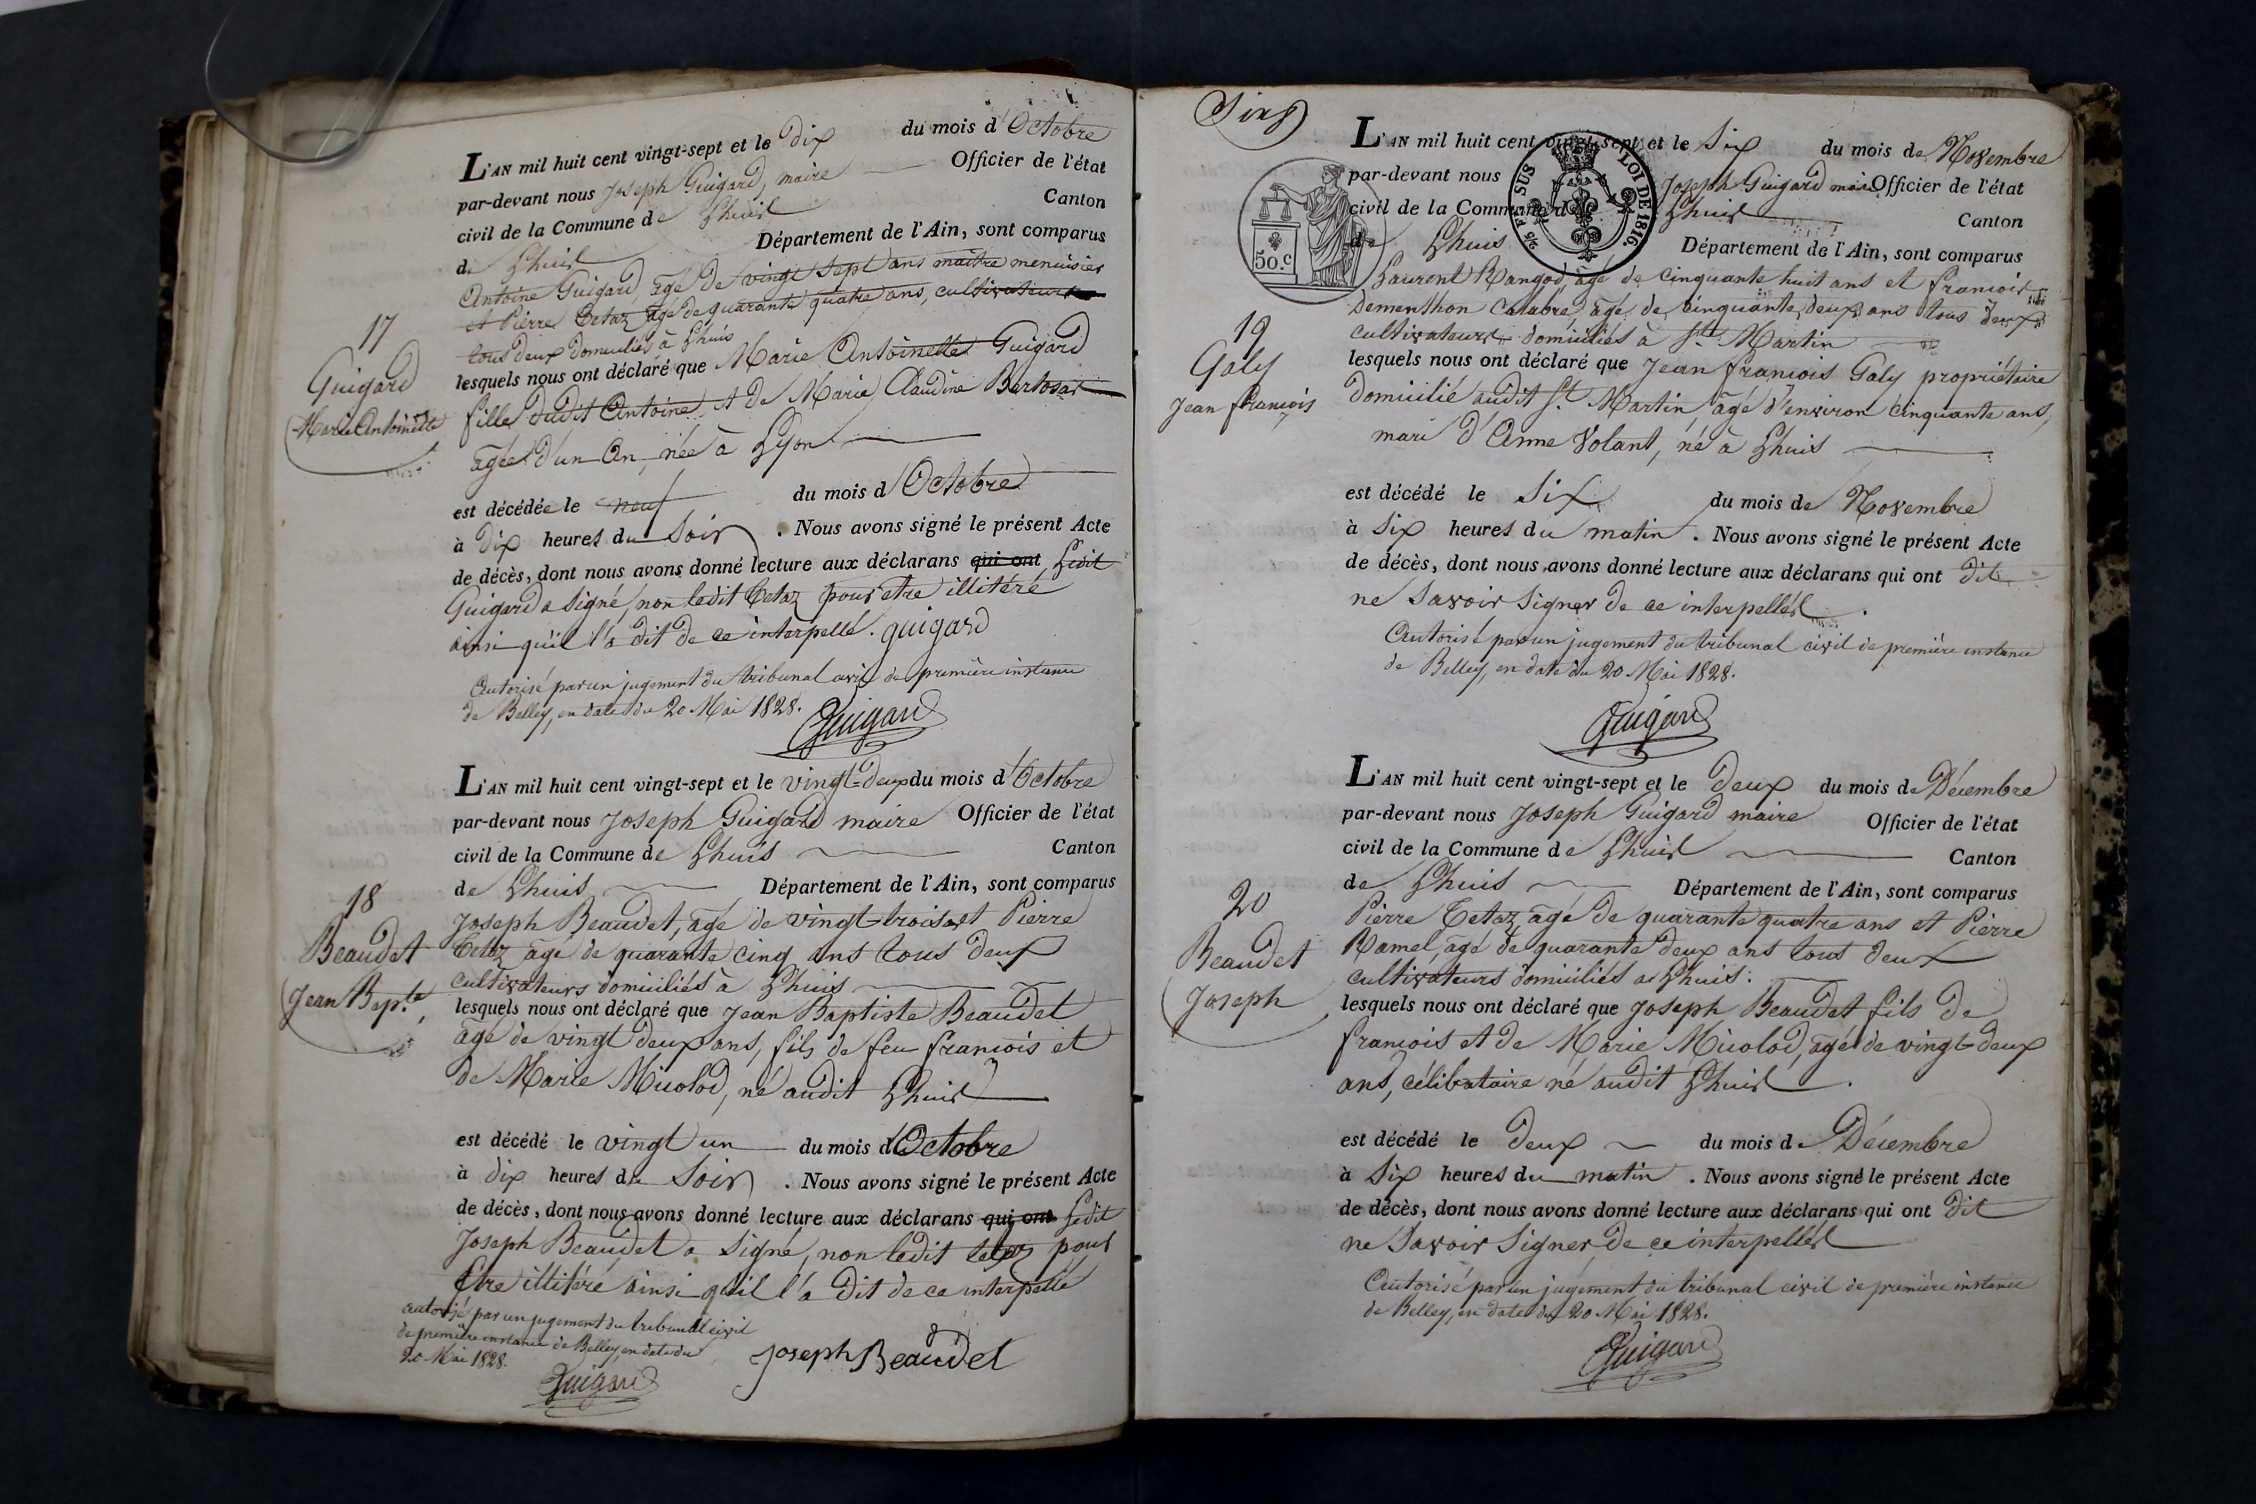 L'AN mil huit cent vingt-sept et le dix du mois d'Octobre
par-devant nous Joseph Guigard, maire Officier de l'état
civil de la Commune de Lhuis Canton
de Lhuis Département de l'Ain, sont comparus
Antoine Guigard, âgé de vingt sept ans maître menuisier
et Pierre Tetaz âgé de quarante quatre ans, cultivateur
tous deux domiciliés à Lhuis
17
Guigard
Marie Antoinette
lesquels nous ont déclaré que Marie Antoinette Guigard
fille dudit Antoine et de Marie Claudine Bertosat
âgée d'un an, née à Lyon
est décédée le neuf du mois d'Octobre
à dix heures du soir. Nous avons signé le présent Acte
de décès, dont nous avons donné lecture aux déclarans qui ont Ledit
Guigard a signé, non ledit Tetaz pour etre illitéré
ainsi qu'il l'a dit de ce interpellé. guigard
Autorisé par un jugement du tribunal civil de première instance
de Belley, en date du 20 Mai 1828.
Guigard
L'AN mil huit cent vingt-sept et le vingt-deux du mois d'Octobre
par-devant nous Joseph Guigard maire Officier de l'état
civil de la Commune de Lhuis Canton
de Lhuis Département de l'Ain, sont comparus
18
Beaudet
Jean Bapte.
Joseph Beaudet, âgé de vingt-trois et Pierre
Tetaz âgé de quarante cinq ans tous deux
cultivateurs domiciliés à Lhuis
lesquels nous ont déclaré que Jean Baptiste Beaudet
âgé de vingt deux ans, fils de feu françois et
de Marie Micolod, né audit Lhuis
est décédé le vingt un du mois d'Octobre
à dix heures du soir. Nous avons signé le présent Acte
de décès, dont nous avons donné lecture aux déclarans qui ont Ledit
Joseph Beaudet a signé, non ledit tetaz pour
Etre illitéré ainsi qu'il l'a dit de ce interpellé
autorisé par un jugement du tribunal civil
de première instance de Belley, en date du
20 Mai 1828.
Joseph Beaudet
Guigard
L'AN mil huit cent vingt-sept et le six du mois de Novembre
par-devant nous Joseph Guigard maire Officier de l'état
civil de la Commune de Lhuis Canton
de Lhuis Département de l'Ain, sont comparus
SUS LOI DE 1816.
50.c
Laurent Rangod, âgé de cinquante huit ans et françois
Dementhon Calabre, âgé de cinquante deux ans tous deux
cultivateurs domiciliés à St. Martin
19
Galy
Jean françois
lesquels nous ont déclaré que Jean françois Galy propriétaire
domicilié audit St. Martin, âgé d'environ cinquante ans,
mari d'Anne Volant, né à Lhuis
est décédé le six du mois de Novembre
à six heures du matin. Nous avons signé le présent Acte
de décès, dont nous avons donné lecture aux déclarans qui ont dit
ne savoir signer de ce interpellés.
Autorisé par un jugement du tribunal civil de première instance
de Belley, en date du 20 Mai 1828.
Guigard
L'AN mil huit cent vingt-sept et le deux du mois de Décembre
par-devant nous Joseph Guigard maire Officier de l'état
civil de la Commune de Lhuis Canton
de Lhuis Département de l'Ain, sont comparus
20
Beaudet
Joseph
Pierre Tetaz, âgé de quarante quatre ans et Pierre
Ramel, âgé de quarante deux ans tous deux
cultivateurs domiciliés à Lhuis.
lesquels nous ont déclaré que Joseph Beaudet fils de
françois et de Marie Micolod, âgé de vingt-deux
ans, célibataire né audit Lhuis.
est décédé le deux du mois de Décembre
à six heures du matin. Nous avons signé le présent Acte
de décès, dont nous avons donné lecture aux déclarans qui ont dit
ne savoir signer de ce interpellés
Autorisé par un jugement du tribunal civil de première instance
de Belley, en date du 20 Mai 1828.
Guigard